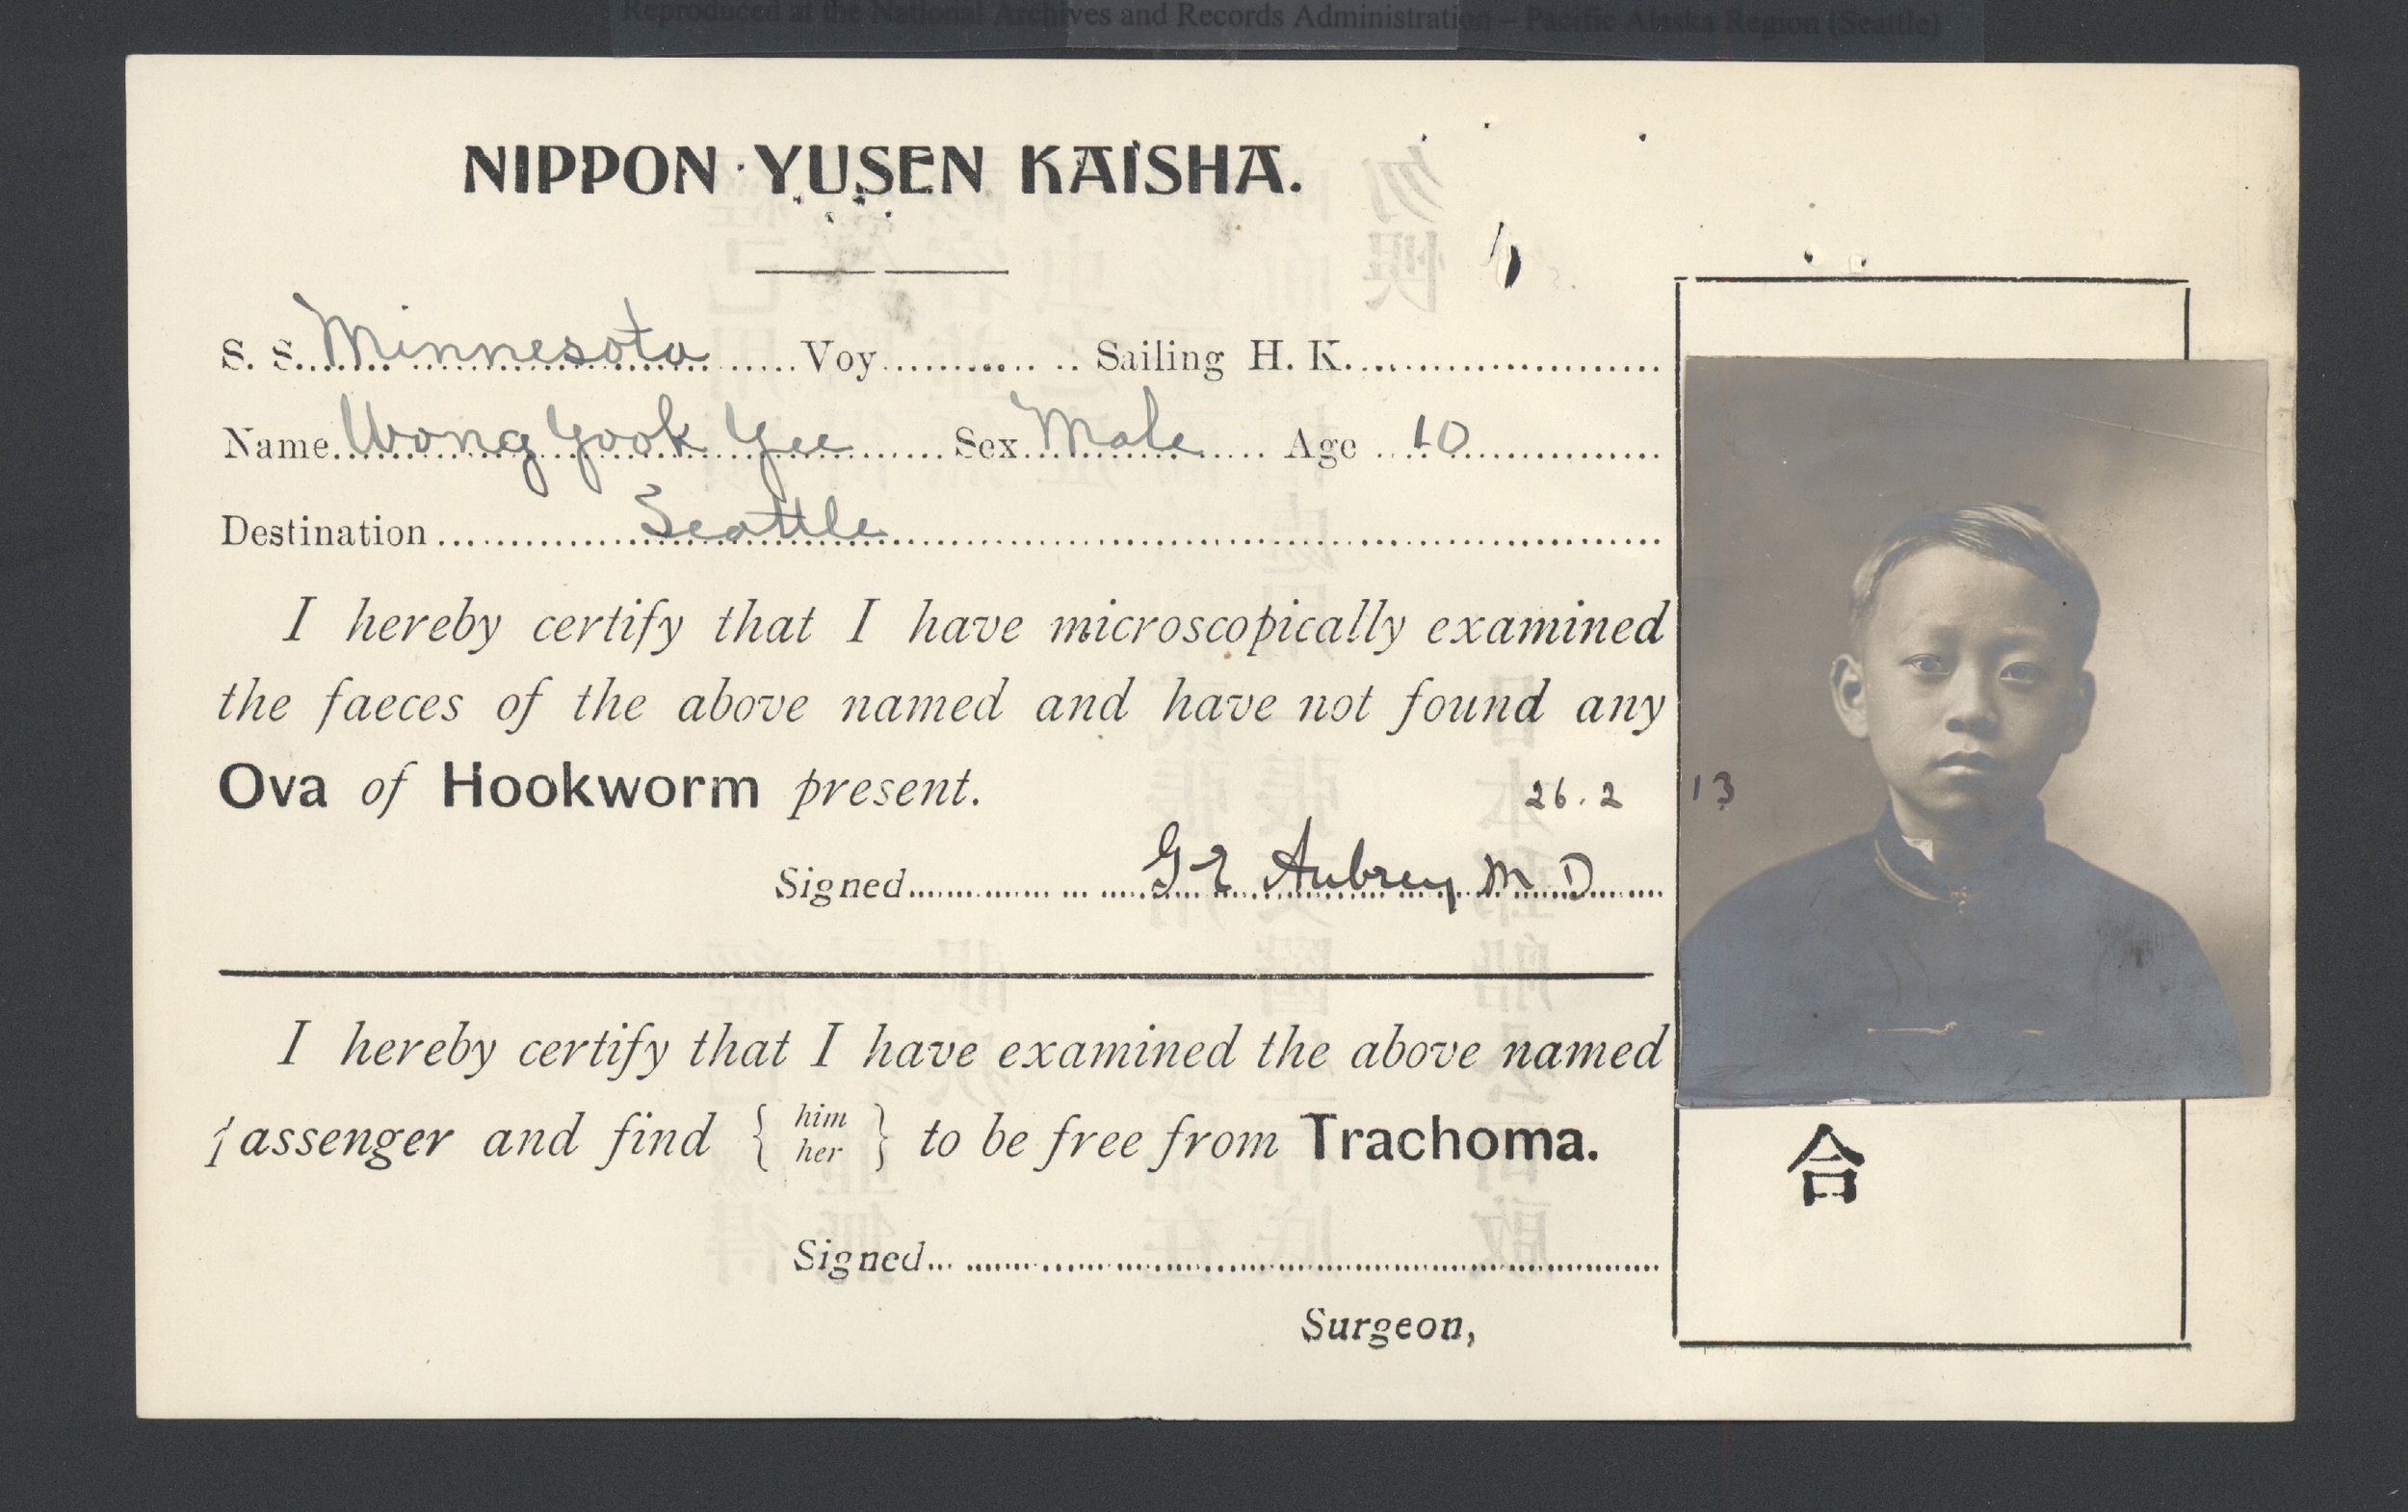 Reproduced at the National Archives and Records Administration – Pacific Alaska Region (Seattle)
NIPPON YUSEN KAISHA.
S. S. Minnesota Voy. Sailing H. K.
Name Wong Yook Yee Sex Male Age 10
Destination Seattle
I hereby certify that I have microscopically examined
the faeces of the above named and have not found any
Ova of Hookworm present.
26.2 13
Signed G E Aubrey M D
I hereby certify that I have examined the above named
passenger and find { him her } to be free from Trachoma.
Signed
Surgeon,
合